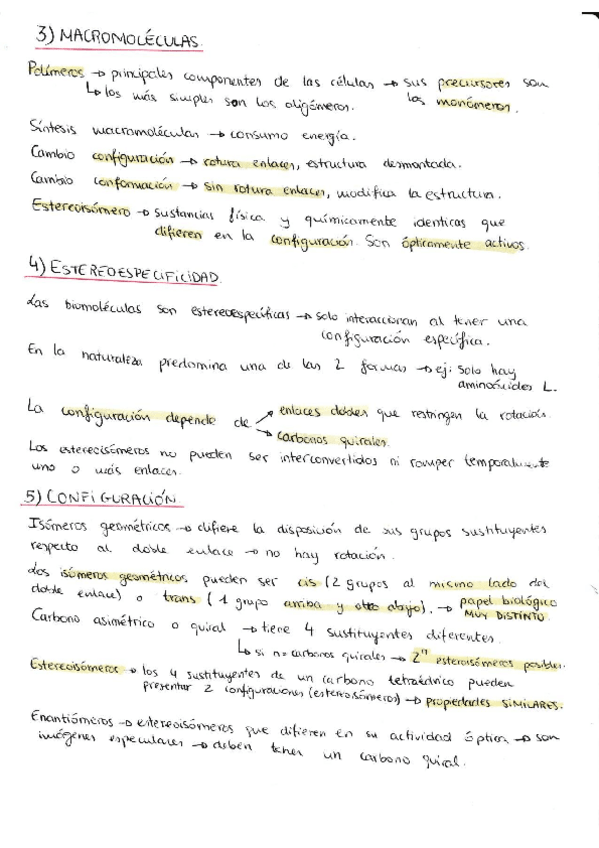 3) MACROMOLÉCULAS.
Polímeros → principales componentes de las células → sus precursores son
↳ los más simples son los oligómeros. los monómeros.
Síntesis macromoléculas → consumo energía.
Cambio configuración → rotura enlaces, estructura desmontada.
Cambio conformación → sin rotura enlaces, modifica la estructura.
Estereoisómero → sustancias física y químicamente identicas que
difieren en la configuración. Son ópticamente activos.
4) ESTEREOESPECIFICIDAD.
Las biomoléculas son estereoespecíficas → solo interaccionan al tener una
configuración específica.
En la naturaleza predomina una de las 2 formas → ej: solo hay
aminoácidos L.
La configuración depende de → enlaces dobles que restringen la rotación.
→ carbonos quirales.
Los estereoisómeros no pueden ser interconvertidos ni romper temporalmente
uno o más enlaces.
5) CONFIGURACIÓN
Isómeros geométricos → difiere la disposición de sus grupos sustituyentes
respecto al doble enlace → no hay rotación.
Los isómeros geométricos pueden ser cis (2 grupos al mismo lado del
doble enlace) o trans (1 grupo arriba y otro abajo). → papel biológico
MUY DISTINTO.
Carbono asimétrico o quiral → tiene 4 sustituyentes diferentes.
↳ si n = carbonos quirales → 2ⁿ estereoisómeros posibles.
Estereoisómeros → los 4 sustituyentes de un carbono tetraédrico pueden
presentar 2 configuraciones (estereoisómeros) → propiedades SIMILARES.
Enantiómeros → estereoisómeros que difieren en su actividad óptica → son
imágenes especulares → deben tener un carbono quiral.